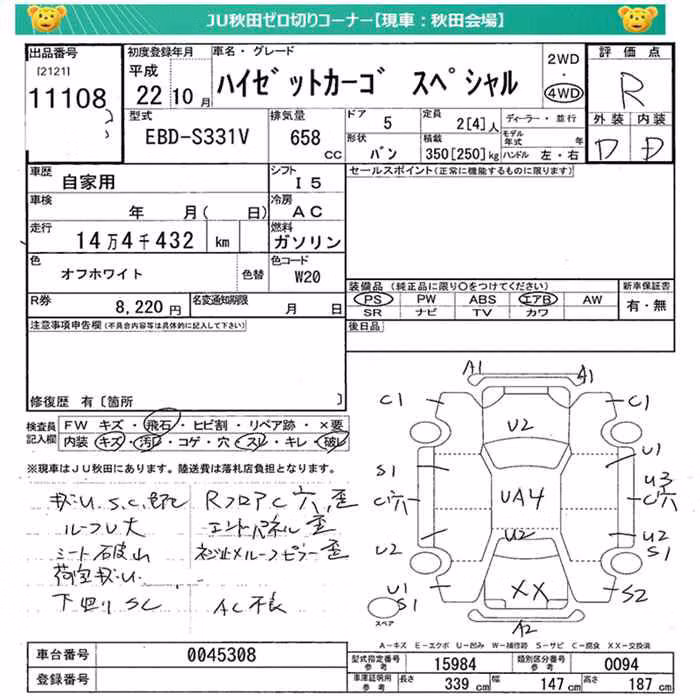 JU秋田ゼロ切りコーナー【現車：秋田会場】
出品番号
[2121]
11108
初度登録年月
平成
22 10月
車名・グレード
ハイゼットカーゴ スペシャル
2WD
・
4WD
評価点
R
外装 内装
D D
型式
EBD-S331V
排気量
658
CC
ドア
5
形状
バン
定員
2[4]人
積載
350[250]kg
ディーラー・並行
モデル年式 年
ハンドル 左・右
車歴
自家用
シフト
I5
車検
年 月( 日)
冷房
AC
走行
14万4千432 km
燃料
ガソリン
色
オフホワイト
色替
色コード
W20
R券
8,220円
名変通知期限
月 日
セールスポイント(正常に機能するものに限ります)
装備品(純正品に限り○をつけてください)
PS PW ABS エアB AW
SR ナビ TV カワ
新車保証書
有・無
後日品
注意事項申告欄(不具合内容等は具体的に記入して下さい)
修復歴 有〔箇所 〕
検査員記入欄
FW キズ・飛石・ヒビ割・リペア跡・×要
内装 キズ・汚れ・コゲ・穴・スレ・キレ・破れ
※現車はJU秋田にあります。陸送費は落札店負担となります。
RフロアC穴、歪
ルーフU大
エンドパネル歪
下回りSC
AC不良
A1
A1
C1
C1
U2
S1
U1
U3
C穴
C穴
UA4
U2
U2
U2
S1
XX
U1
S1
S2
スペア
A2
A-キズ E-エクボ U-凹み W-補修跡 S-サビ C-腐食 XX-交換済
車台番号
0045308
登録番号
型式指定番号
参考
15984
類別区分番号
参考
0094
車庫証明用
参考
長さ
339 cm
幅
147 cm
高さ
187 cm